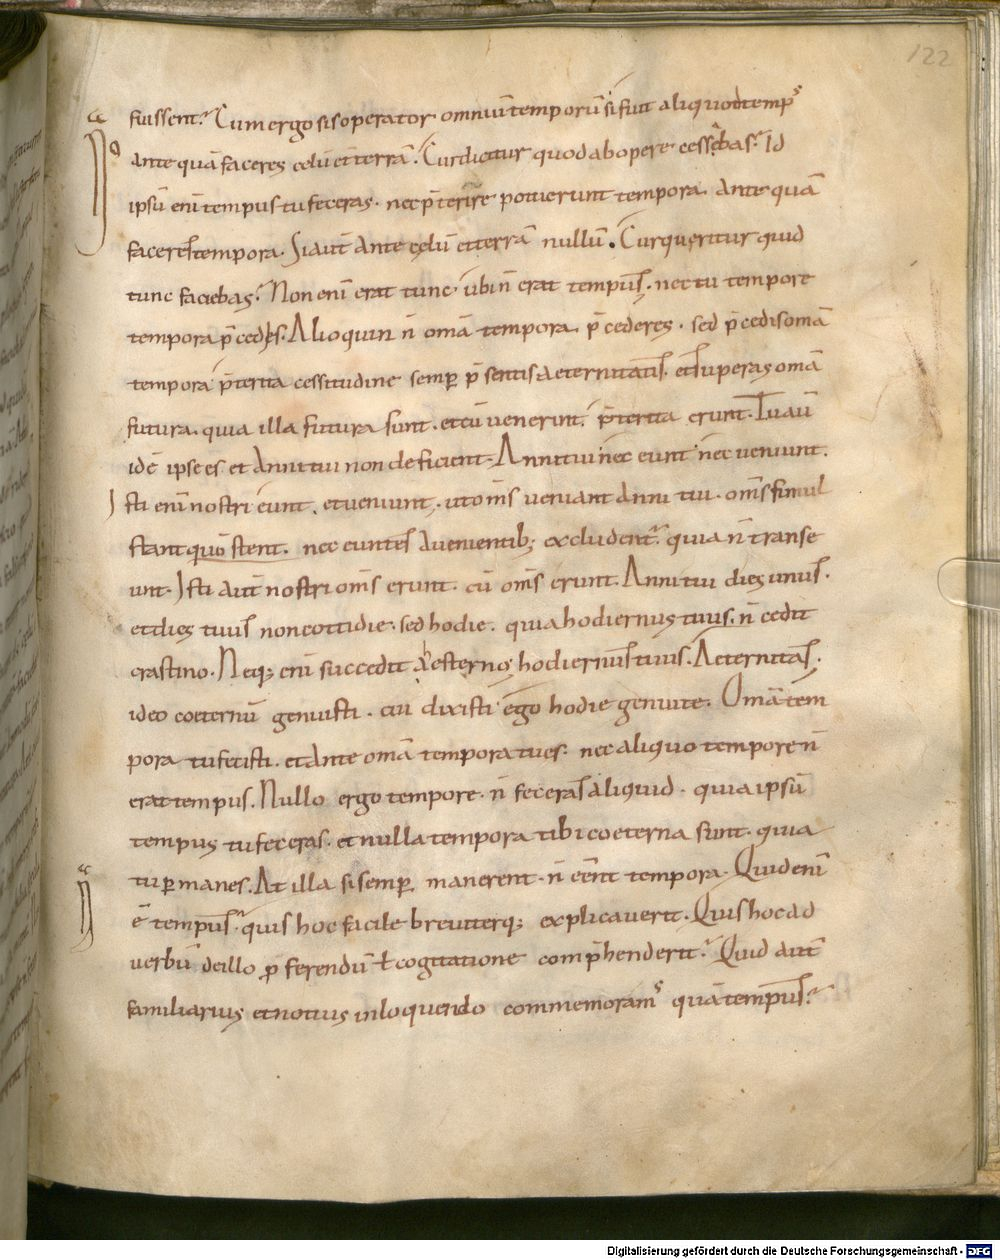 122
fuissent? Cum ergo sis operator omniũ temporũ si fuit aliquod temp᾽
ante quã faceres celũ et terrã. Cur dicitur quod ab opere cessabas? Id
ipsũ eni tempus tu feceras. nec p̃terire potuerunt tempora. ante quã
faceres tempora. Si aut̃ ante cęlũ et terrã nullũ. Cur queritur quid
tunc faciebas? Non eni erat tunc. ubi ñ erat tempus. nec tu tempore
tempora p̃cedis. Alioquin ñ omã tempora p̃cederes. sed p̃cedis omã
tempora p̃terita cęlsitudine semp̱ p̃sentis aeternitatis. et superas omã
futura. quia illa futura sunt. et cũ venerint. p̃terita erunt. Tu aũ
idẽ ipse es et anni tui non deficient. Anni tui nec eunt nec veniunt.
Isti eni nostri eunt. et veniunt. ut om̃s veniant anni tui. om̃s simul
stant quo stent. nec euntes a venientib; excludent᾽. quia ñ transe
unt. Isti aut̃ nostri om̃s erunt. cũ om̃s erunt. Anni tui dies unus.
et dies tuus non cottidie. sed hodie. quia hodiernus tuus. ñ cedit
crastino. Neq; eni succedit hesterno hodiernus tuus. Aeternitas.
ideo coeternũ genuisti. cui dixisti ego hodie genui te. Omã tem
pora tu fecisti. et ante omã tempora tu es. nec aliquo tempore ñ
erat tempus. Nullo ergo tempore. ñ feceras aliquid. quia ipsũ
tempus tu feceras. et nulla tempora tibi coeterna sunt. quia
tu p̱manes. At illa si semp̱ manerent. ñ eẽnt tempora. Quid eni
ẽ tempus? quis hoc facile breviterq; explicaverit. Quis hoc ad
verbũ de illo p̱ferendũ ł cogitatione comp̃henderit? Quid aut̃
familiarius et notius in loquendo commemoram᾽ quã tempus?
Digitalisierung gefördert durch die Deutsche Forschungsgemeinschaft - DFG